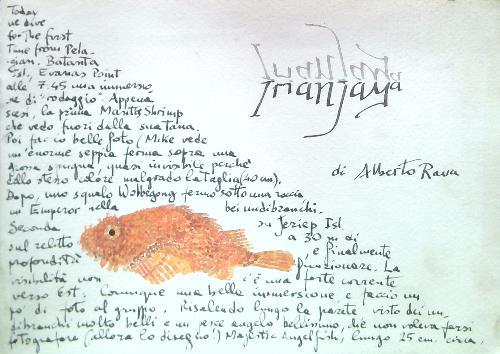 Today
we dive
for the first
time from Pela-
gian. Batanta
Isl., Evanas Point
alle 7.45 una immersio
ne di "rodaggio". Appena
scesi, la prima Mantis Shrimp
che vedo fuori dalla sua tana.
Poi faccio belle foto (Mike vede
un'enorme seppia ferma sopra una
quasi invisibile perché
dello stesso colore malgrado la taglia (40 cm).
Dopo, uno squalo Wobbegong fermo sotto una roccia
un Emperor nella
bei nudibranchi.
Seconda
su Jeriep Isl.
sul relitto
a 30 m di
profondità
e finalmente
funzionare. La
visibilità non
c'è una forte corrente
verso Est. Comunque una bella immersione, e faccio un
po' di foto al gruppo. Risalendo lungo la parete visto dei nu
dibranchi molto belli e un pesce angelo bellissimo, che non voleva farsi
fotografare (allora lo disegno) Majestic Angelfish, lungo 25 cm. circa.
Irian Jaya
Irian Jaya
di Alberto Rava